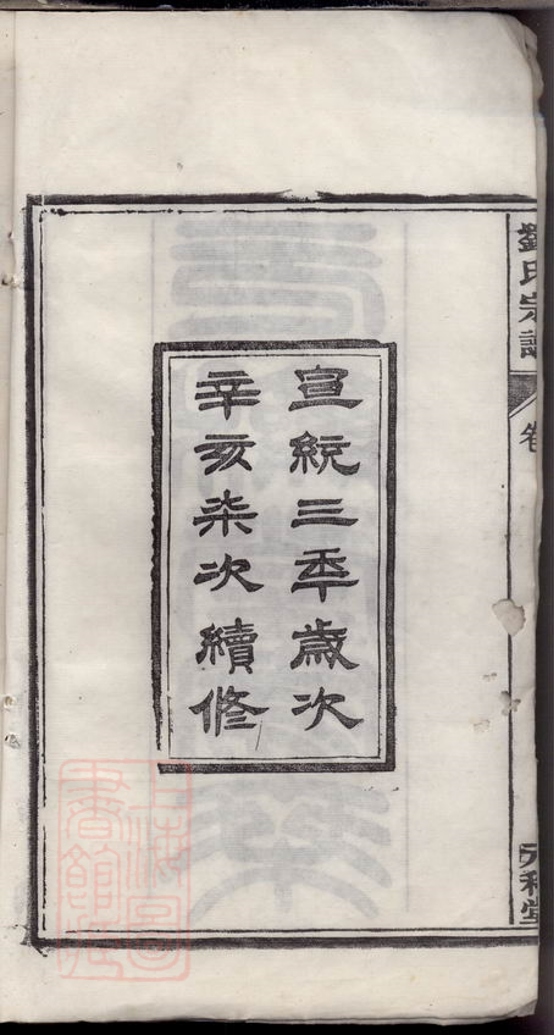 劉氏宗譜 卷
宣統三季歲次
辛亥柒次續修
上海圖
書館藏